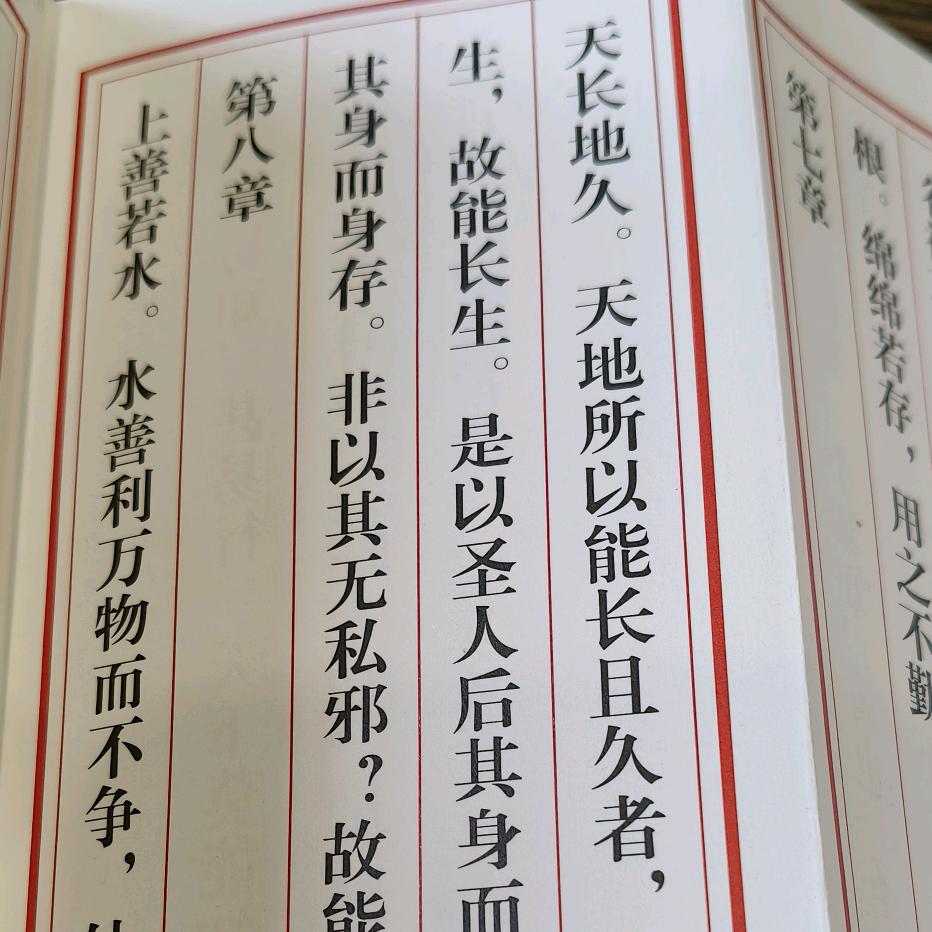 根。绵绵若存，用之不勤
第七章
天长地久。天地所以能长且久者，
生，故能长生。是以圣人后其身而
其身而身存。非以其无私邪？故能
第八章
上善若水。水善利万物而不争，